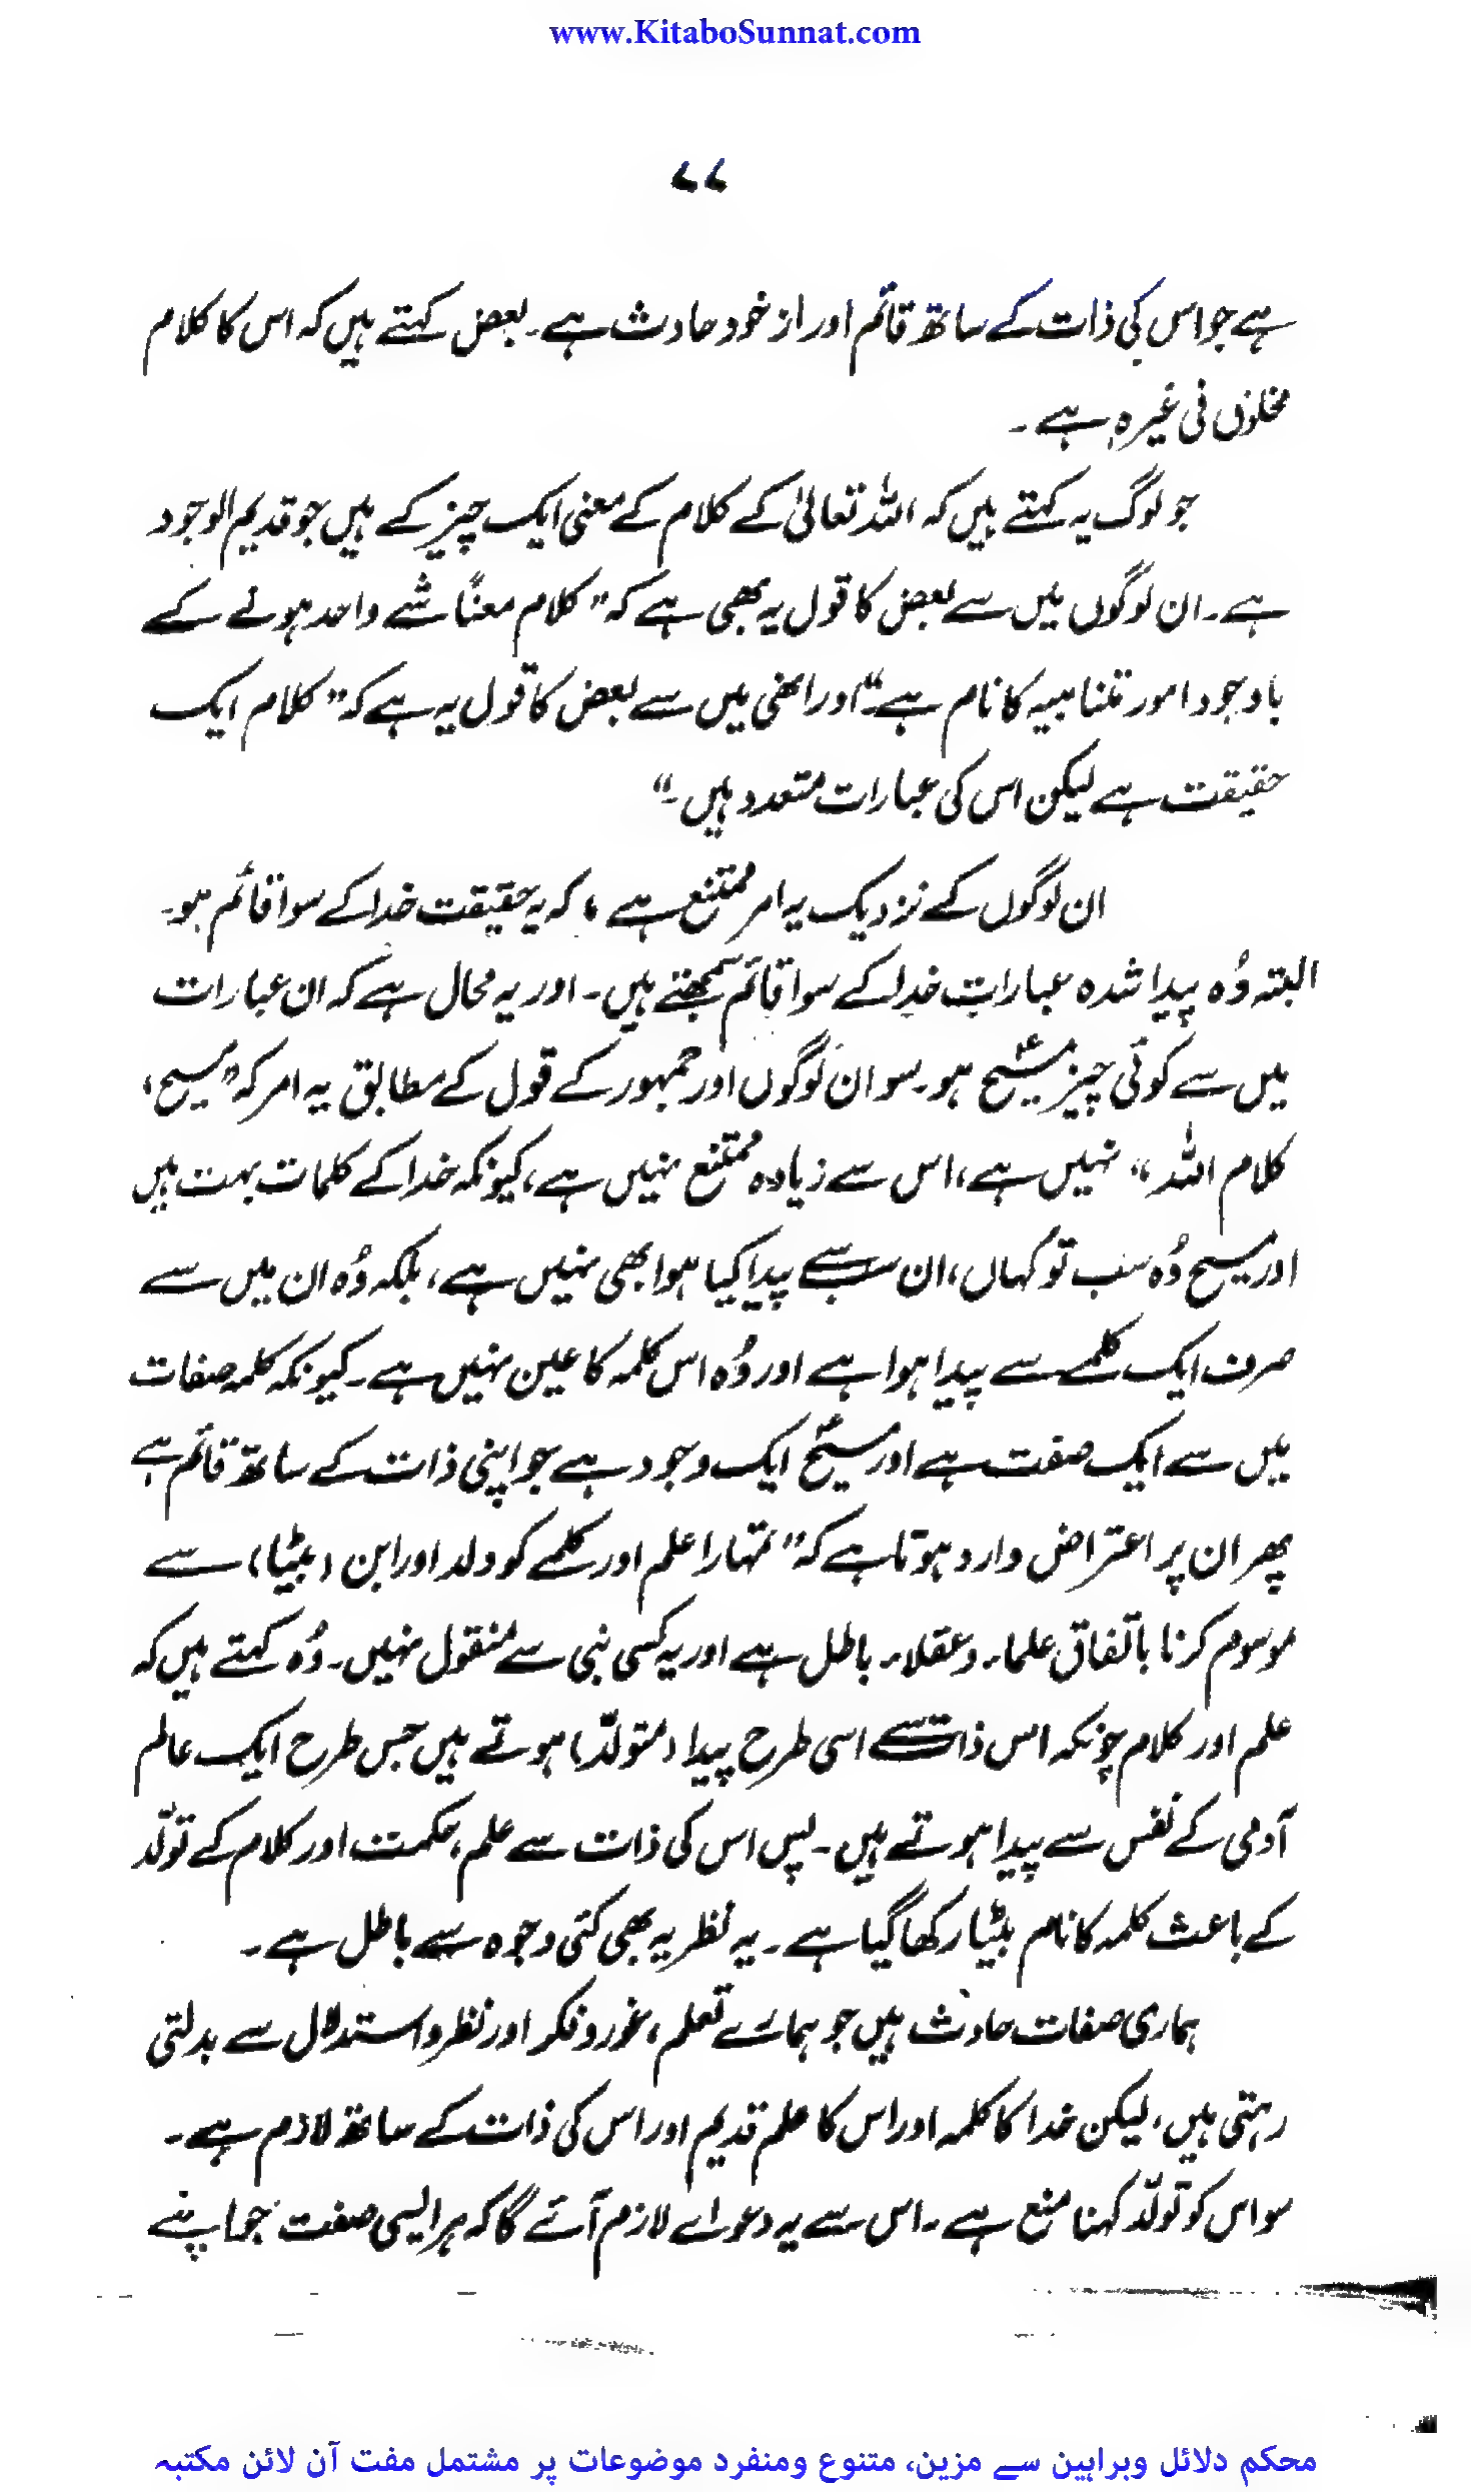 www.KitaboSunnat.com
۷۷
ہے جو اس کی ذات کے ساتھ قائم اور از خود حادث ہے۔ بعض کہتے ہیں کہ اس کا کلام
مخلوق فی غیرہٖ ہے۔
جو لوگ یہ کہتے ہیں کہ اللہ تعالیٰ کے کلام کے معنی ایک چیز کے ہیں جو قدیم الوجود
ہے۔ ان لوگوں میں سے بعض کا قول یہ بھی ہے کہ ”کلام معناً شے واحد ہونے کے
باوجود امور متناہیہ کا نام ہے۔“ اور انھی میں سے بعض کا قول یہ ہے کہ ”کلام ایک
حقیقت ہے لیکن اس کی عبارات متعدد ہیں۔“
ان لوگوں کے نزدیک یہ امر ممتنع ہے، کہ یہ حقیقت خدا کے سوا قائم ہو۔
البتہ وُہ پیدا شدہ عبارات خدا کے سوا قائم سمجھتے ہیں۔ اور یہ محال ہے کہ ان عبارات
میں سے کوئی چیز مسیحؑ ہو۔ سو ان لوگوں اور جمہور کے قول کے مطابق یہ امر کہ ”مسیح،
کلام اللہ“ نہیں ہے، اس سے زیادہ ممتنع نہیں ہے، کیونکہ خدا کے کلمات بہت ہیں
اور مسیح وُہ سب تو کہاں، ان سب سے پیدا کیا ہوا بھی نہیں ہے، بلکہ وُہ ان میں سے
صرف ایک کلمے سے پیدا ہوا ہے اور وُہ اس کلمہ کا عین نہیں ہے۔ کیونکہ کلمہ صفات
میں سے ایک صفت ہے اور مسیحؑ ایک وجود ہے جو اپنی ذات کے ساتھ قائم ہے
پھر ان پر اعتراض وارد ہوتا ہے کہ ”تمہارا علم اور کلمے کو ولد اور ابن (بیٹا) سے
موسوم کرنا باتفاق علماء و عقلاء باطل ہے اور یہ کسی نبی سے منقول نہیں۔ وُہ کہتے ہیں کہ
علم اور کلام چونکہ اس ذات سے اسی طرح پیدا (متولّد) ہوتے ہیں جس طرح ایک عالم
آدمی کے نفس سے پیدا ہوتے ہیں۔ پس اس کی ذات سے علم، حکمت اور کلام کے تولّد
کے باعث کلمہ کا نام بیٹا رکھا گیا ہے۔ یہ نظریہ بھی کئی وجوہ سے باطل ہے۔
ہماری صفات حادث ہیں جو ہمارے تعلم، غور و فکر اور نظر و استدلال سے بدلتی
رہتی ہیں، لیکن خدا کا کلمہ اور اس کا علم قدیم اور اس کی ذات کے ساتھ لازم ہے۔
سو اس کو تولّد کہنا منع ہے۔ اس سے یہ دعوےٰ لازم آئے گا کہ ہر ایسی صفت جو اپنے
محکم دلائل وبراہین سے مزین، متنوع ومنفرد موضوعات پر مشتمل مفت آن لائن مکتبہ